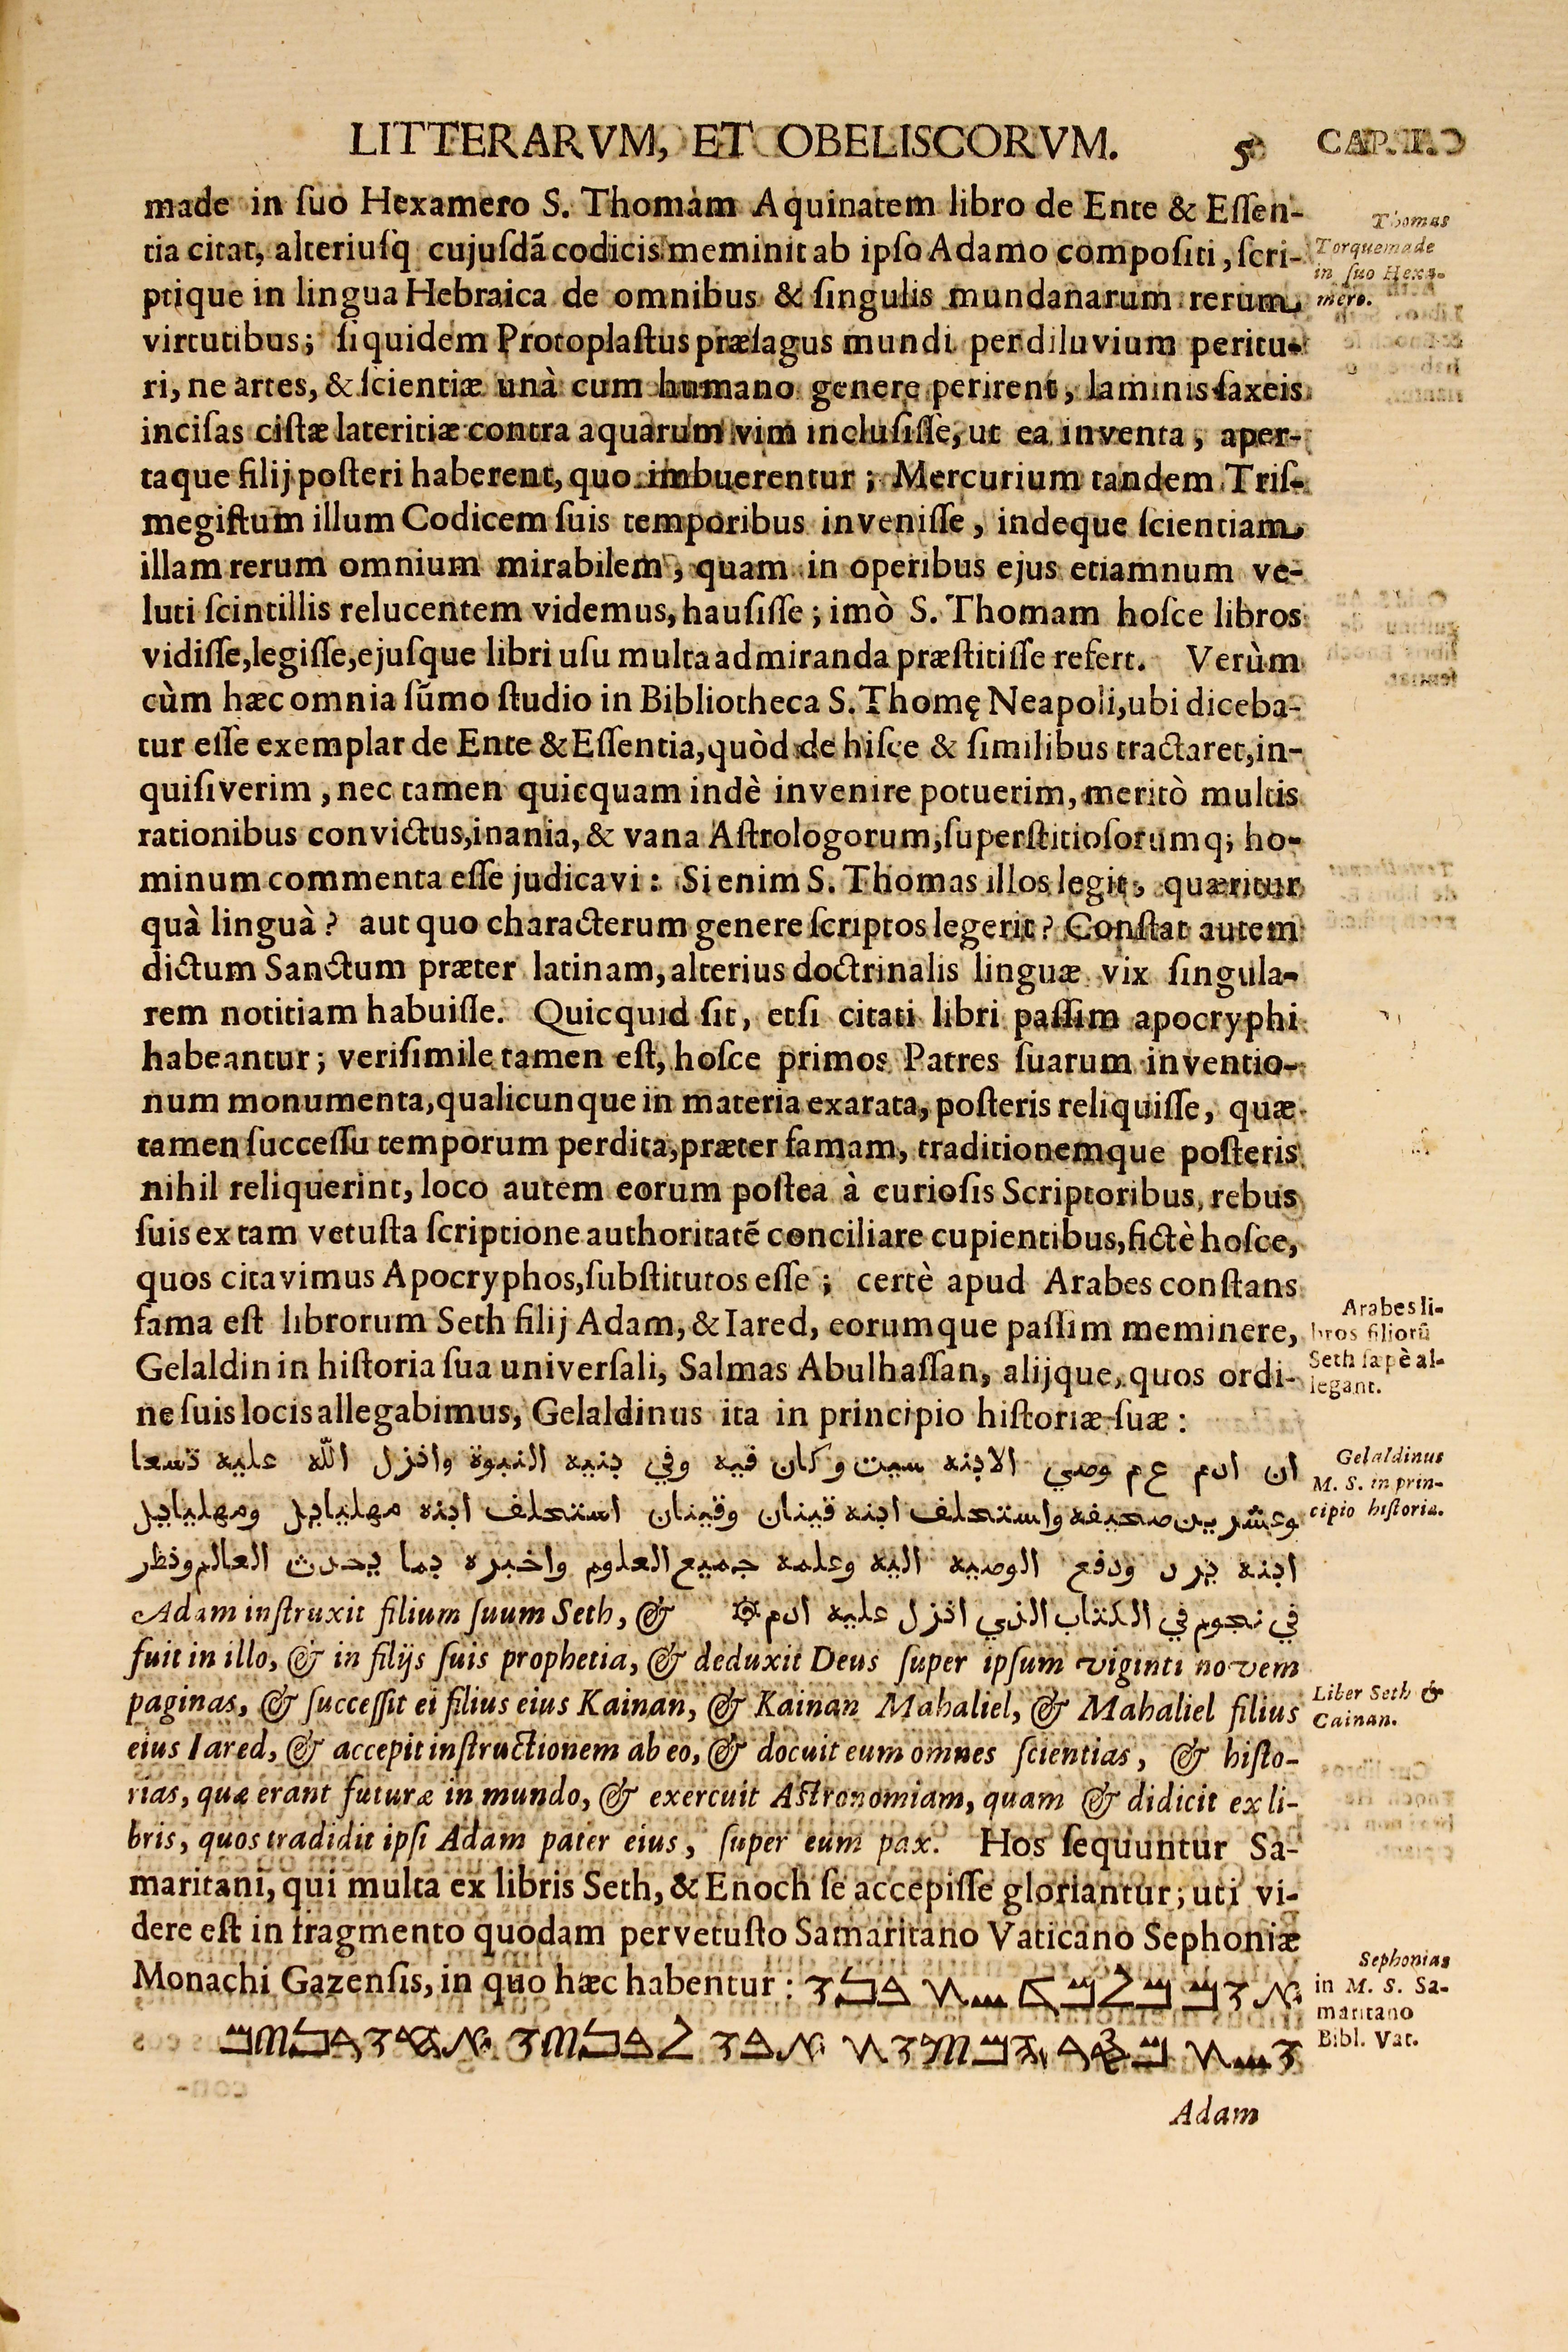 LITTERARVM, ET OBELISCORVM. 5 CAP. I.
made in ſuo Hexamero S. Thomam Aquinatem libro de Ente & Eſſen-
tia citat, alteriuſq cujuſdã codicis meminit ab ipſo Adamo compoſiti, ſcri-
ptique in lingua Hebraica de omnibus & ſingulis mundanarum rerum
virtutibus; ſiquidem Protoplaſtus præſagus mundi per diluvium peritu-
ri, ne artes, & ſcientiæ unà cum humano genere perirent, laminis ſaxeis
inciſas ciſtæ lateritiæ contra aquarum vim incluſiſſe, ut ea inventa, aper-
taque filij poſteri haberent, quo imbuerentur; Mercurium tandem Triſ-
megiſtum illum Codicem ſuis temporibus inveniſſe, indeque ſcientiam
illam rerum omnium mirabilem, quam in operibus ejus etiamnum ve-
luti ſcintillis relucentem videmus, hauſiſſe; imò S. Thomam hoſce libros
vidiſſe, legiſſe, ejuſque libri uſu multa admiranda præſtitiſſe refert. Verùm
cùm hæc omnia ſũmo ſtudio in Bibliotheca S. Thomę Neapoli, ubi diceba-
tur eſſe exemplar de Ente & Eſſentia, quòd de hiſce & ſimilibus tractaret, in-
quiſiverim, nec tamen quicquam indè invenire potuerim, meritò multis
rationibus convictus, inania, & vana Aſtrologorum, ſuperſtitioſorumq; ho-
minum commenta eſſe judicavi: Si enim S. Thomas illos legit, quæritur
quà linguà? aut quo characterum genere ſcriptos legerit? Conſtat autem
dictum Sanctum præter latinam, alterius doctrinalis linguæ vix ſingula-
rem notitiam habuiſſe. Quicquid ſit, etſi citati libri paſſim apocryphi
habeantur; veriſimile tamen eſt, hoſce primos Patres ſuarum inventio-
num monumenta, qualicunque in materia exarata, poſteris reliquiſſe, quæ
tamen ſucceſſu temporum perdita, præter famam, traditionemque poſteris
nihil reliquerint, loco autem eorum poſtea à curioſis Scriptoribus, rebus
ſuis ex tam vetuſta ſcriptione authoritatẽ conciliare cupientibus, fictè hoſce,
quos citavimus Apocryphos, ſubſtitutos eſſe; certè apud Arabes conſtans
fama eſt librorum Seth filij Adam, & Iared, eorumque paſſim meminere,
Gelaldin in hiſtoria ſua univerſali, Salmas Abulhaſſan, alijque, quos ordi-
ne ſuis locis allegabimus, Gelaldinus ita in principio hiſtoriæ ſuæ:
ان ادم ع م وصي الابنه سيت وكان فيه وفي بنيه النبوة وانزل الله عليه تسعا
وعشرين صحيفه واستخلف ابنه قينان وقينان استخلف ابنه مهليايل ومهليايل
ابنه يرد ودفع الوصيه اليه وعلمه جميع العلوم واخبره بما يحدث العالم ونظر
في نجوم في الكتاب الذي انزل عليه ادم Adam inſtruxit filium ſuum Seth, &
fuit in illo, & in filijs ſuis prophetia, & deduxit Deus ſuper ipſum viginti novem
paginas, & ſucceſſit ei filius eius Kainan, & Kainan Mahaliel, & Mahaliel filius
eius Iared, & accepit inſtructionem ab eo, & docuit eum omnes ſcientias, & hiſto-
rias, quæ erant futuræ in mundo, & exercuit Aſtronomiam, quam & didicit ex li-
bris, quos tradidit ipſi Adam pater eius, ſuper eum pax. Hos ſequuntur Sa-
maritani, qui multa ex libris Seth, & Enoch ſe accepiſſe gloriantur; uti vi-
dere eſt in fragmento quodam pervetuſto Samaritano Vaticano Sephoniæ
Monachi Gazenſis, in quo hæc habentur:
Adam
Thomas
Torquemade
in ſuo Hexa-
mero.
Arabes li-
bros filiorũ
Seth ſæpè al-
legant.
Gelaldinus
M. S. in prin-
cipio hiſtoria.
Liber Seth &
Cainan.
Sephonias
in M. S. Sa-
maritano
Bibl. Vat.